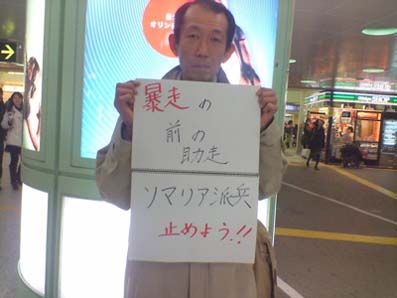 暴走の
前の
助走
ソマリア派兵
止めよう!!